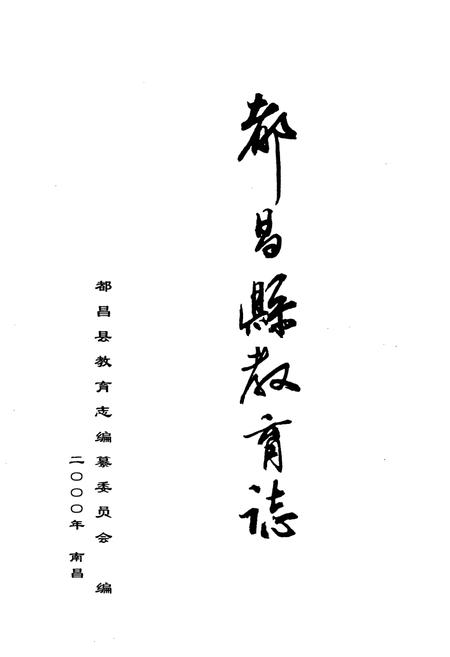 都昌縣教育誌
都昌县教育志编纂委员会 编
二〇〇〇年 南昌